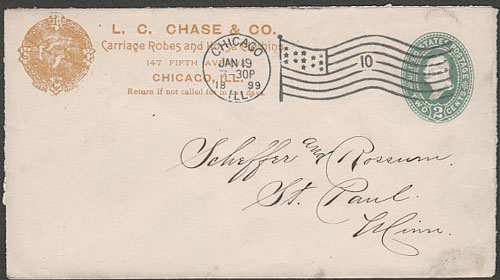 L. C. CHASE & CO.
Carriage Robes and Horse Clothing
147 FIFTH AVENUE
CHICAGO, ILL.
Return if not called for in days.
CHICAGO
JAN 19
30P
18 99
ILL.
10
STATES
TWO 2 CENTS
Scheffer and Rossum
St. Paul
Minn.